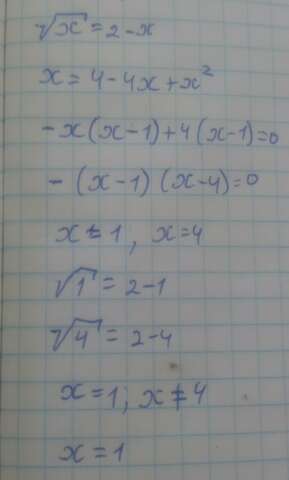 √x = 2 - x
x = 4 - 4x + x²
- x(x-1) + 4(x-1) = 0
- (x-1)(x-4) = 0
x = 1, x = 4
√1 = 2 - 1
√4 = 2 - 4
x = 1, x ≠ 4
x = 1